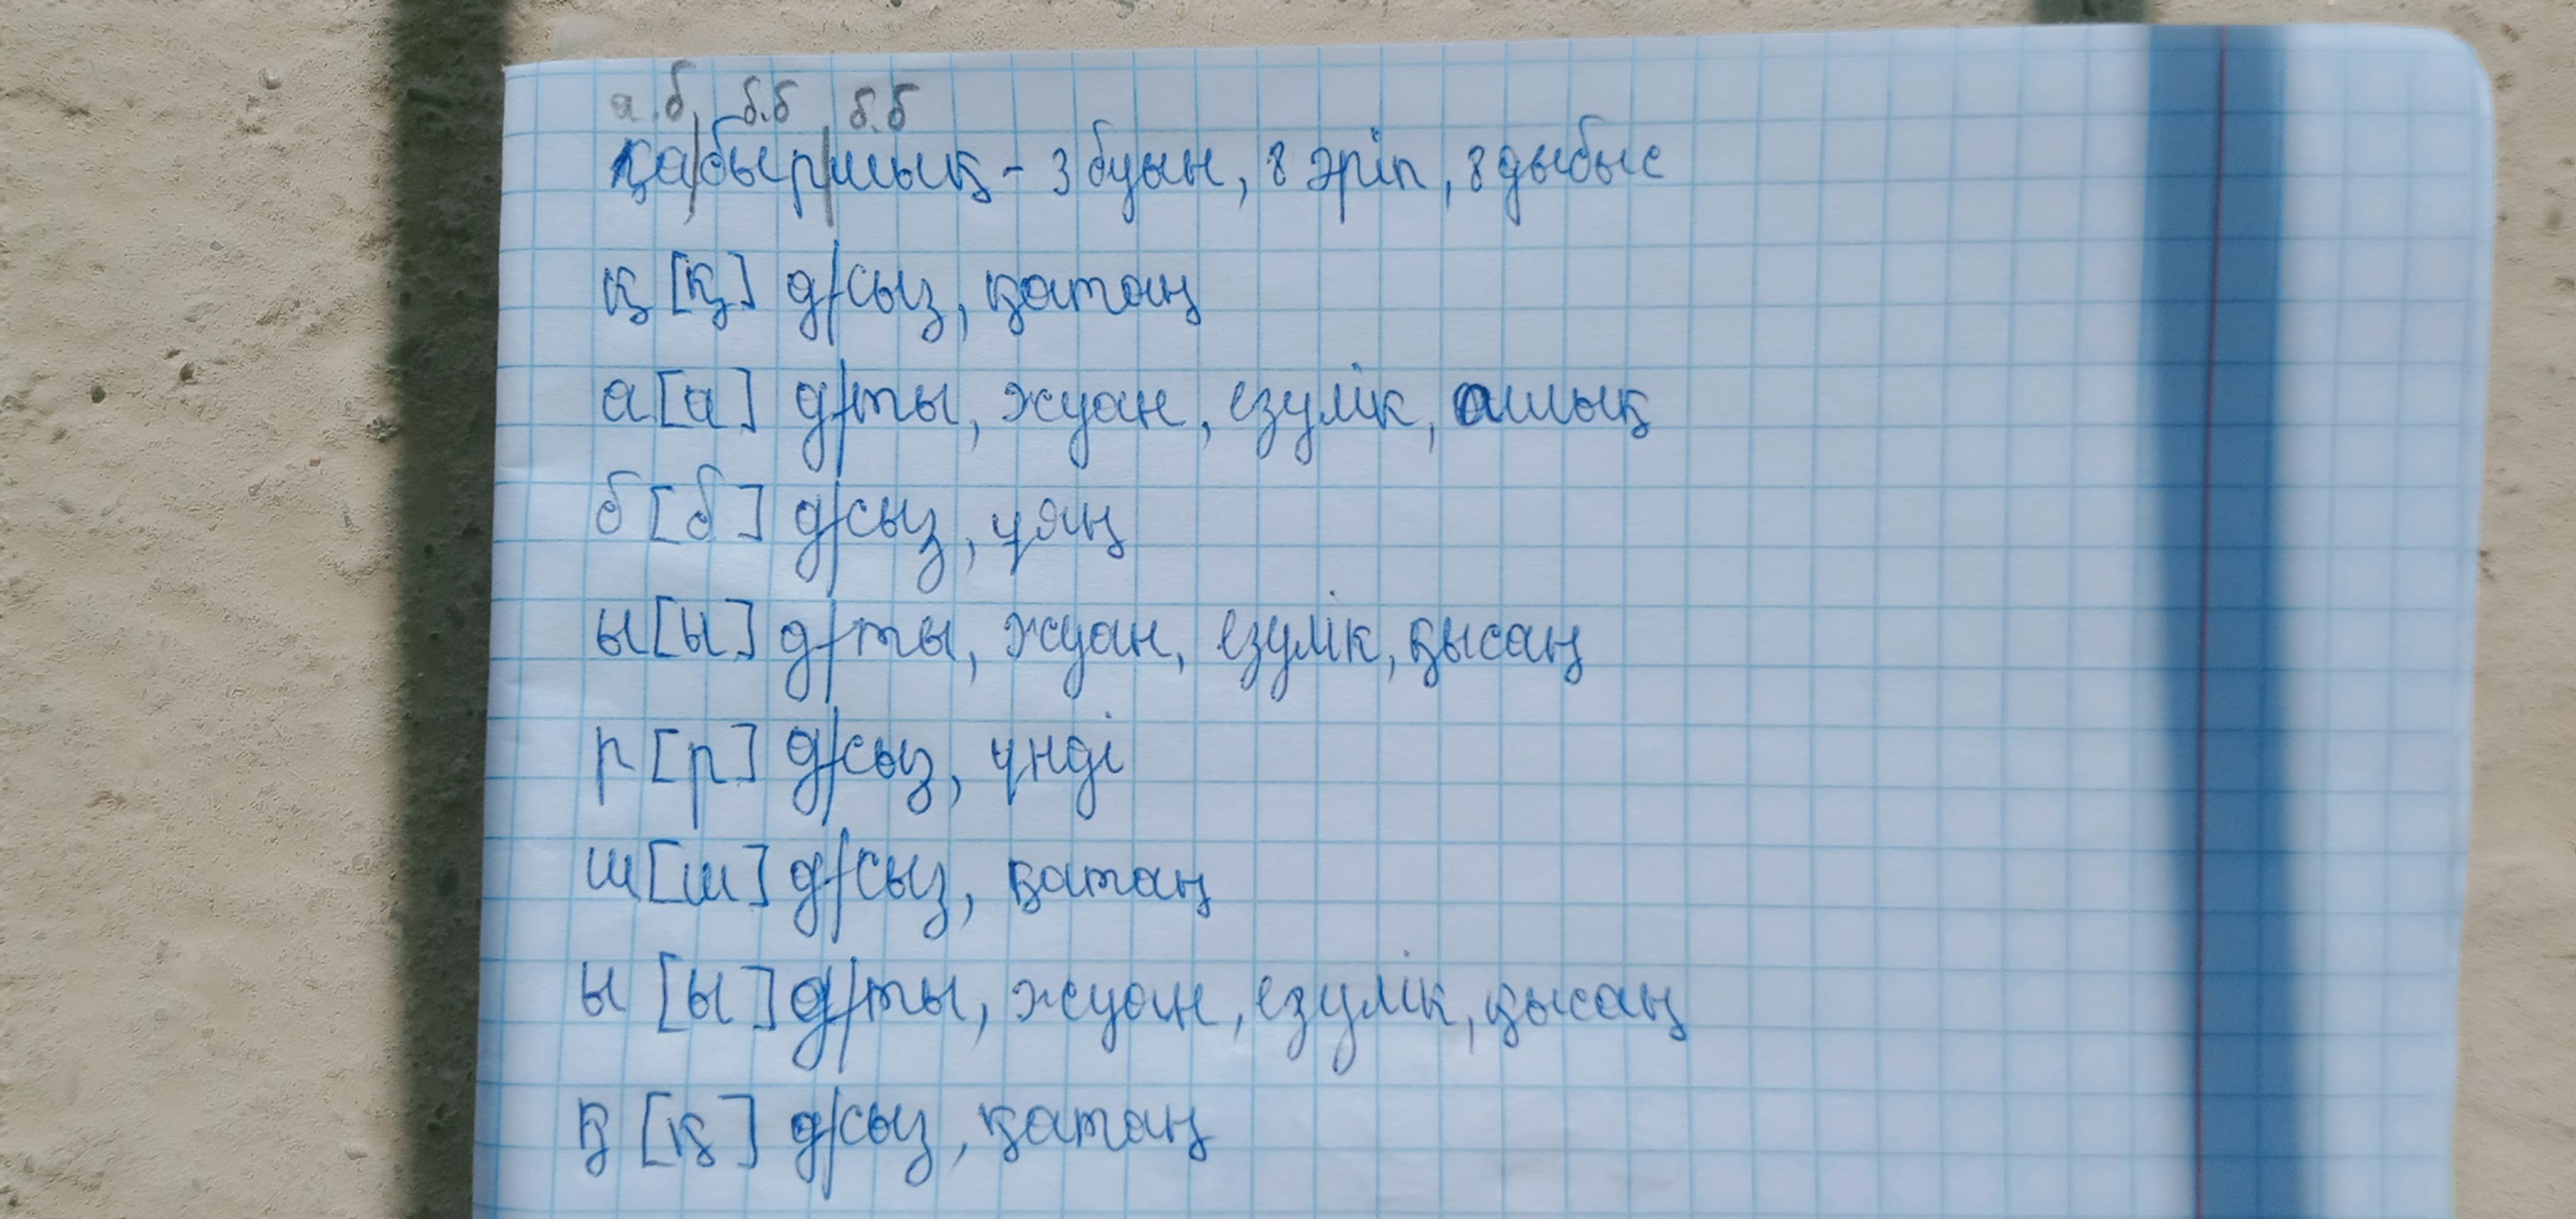 а.б. б.б б.б
Қа/быр/шық - 3 буын, 8 әріп, 8 дыбыс
қ [қ] д/сыз, қатаң
а [а] д/ты, жуан, езулік, ашық
б [б] д/сыз, ұяң
ы [ы] д/ты, жуан, езулік, қысаң
р [р] д/сыз, үнді
ш [ш] д/сыз, қатаң
ы [ы] д/ты, жуан, езулік, қысаң
қ [қ] д/сыз, қатаң